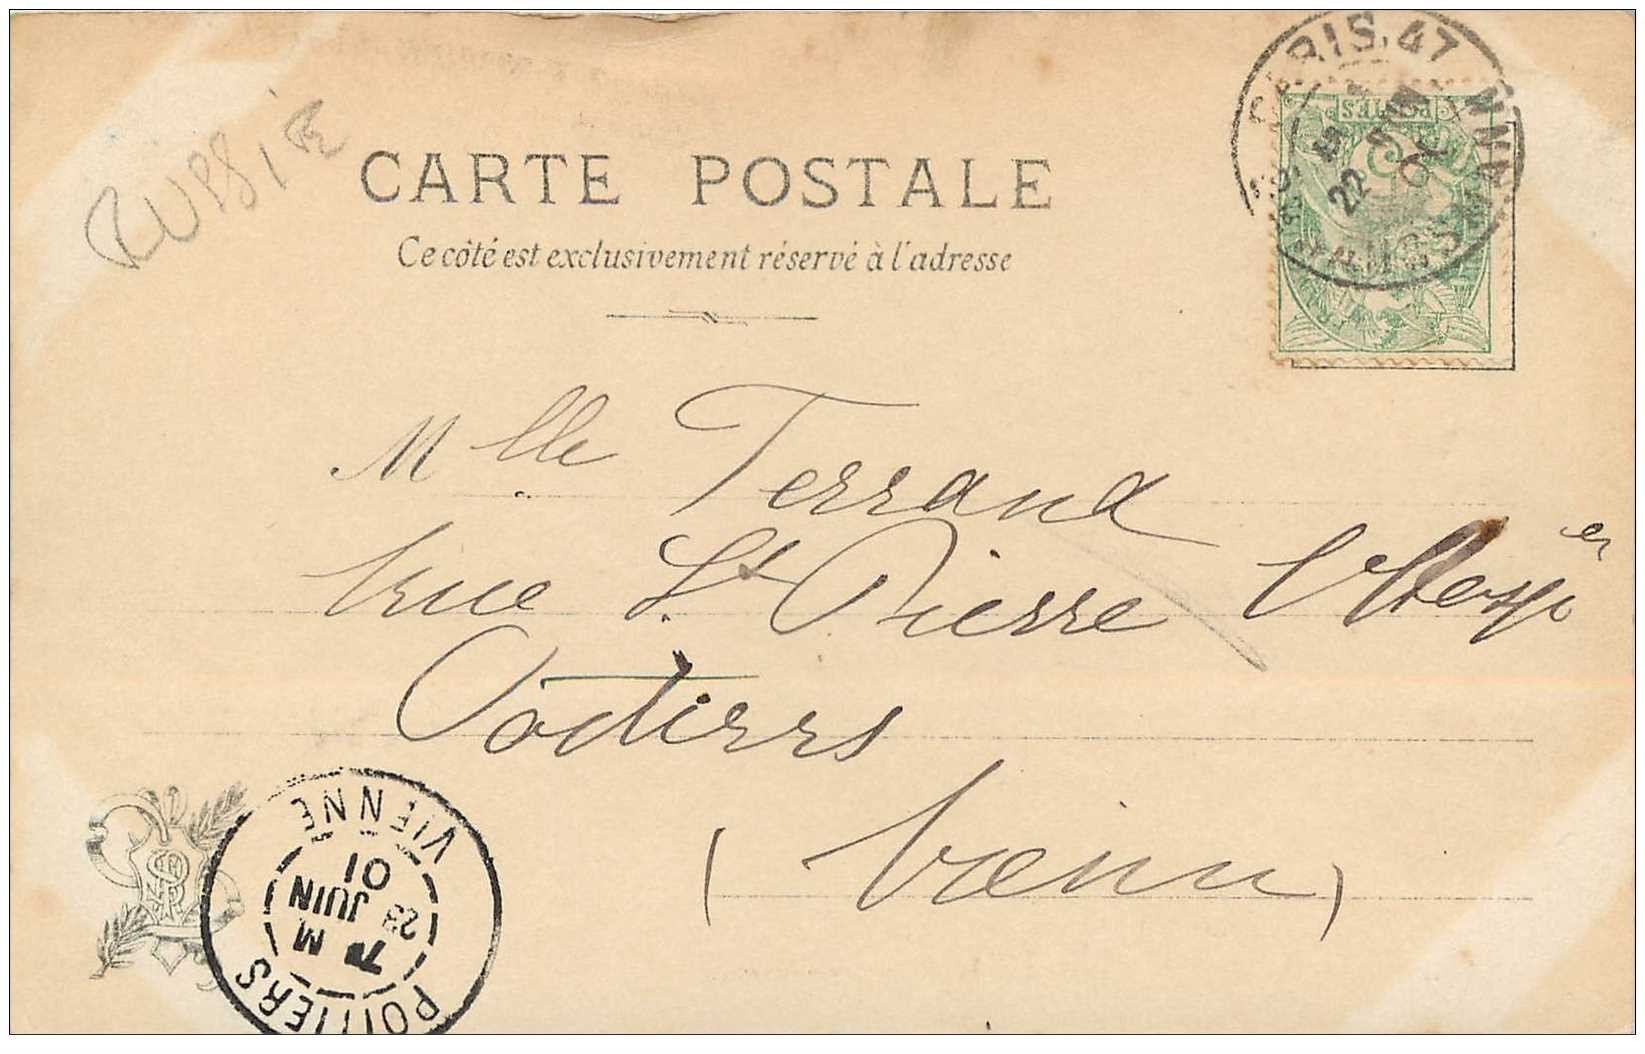 RUSSIE
CARTE POSTALE
Ce côté est exclusivement réservé à l'adresse
PARIS. 47
22 JUIN 01
POSTES
Mlle Terrand
rue St Pierre l'
Poitiers
(Vienne)
POITIERS
7 M
23 JUIN
01
VIENNE